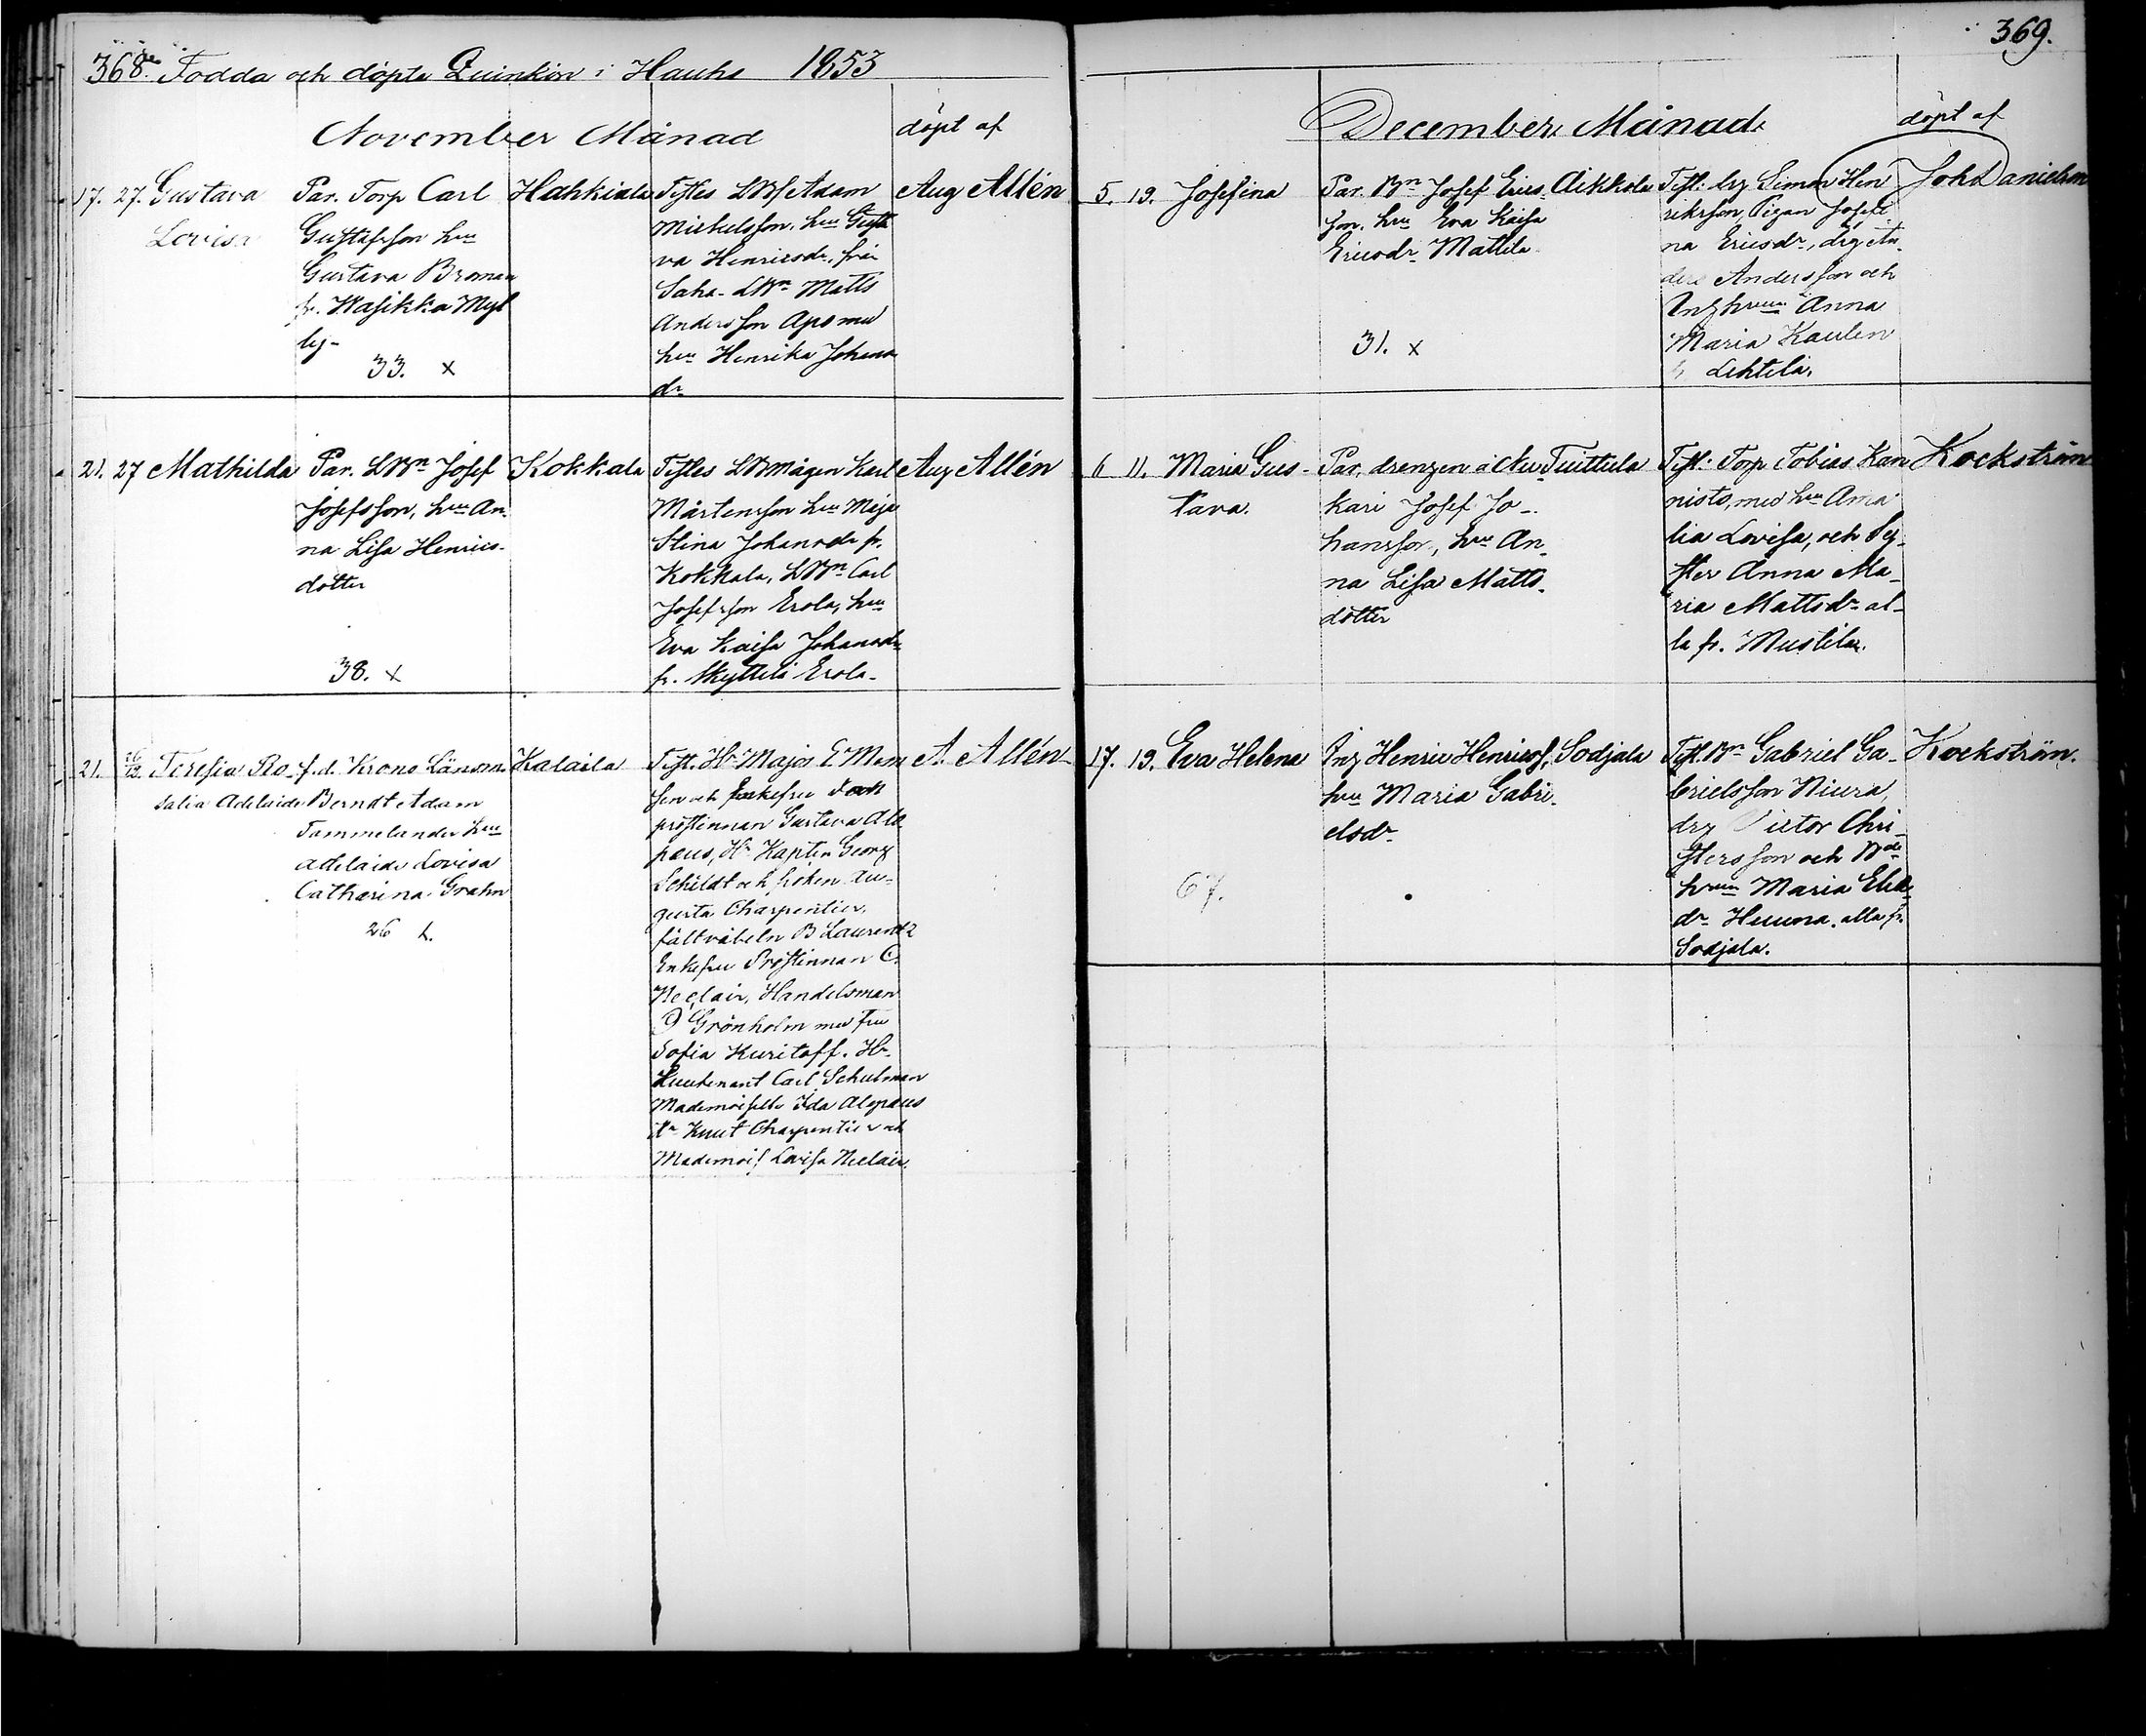 368. Fodda och döpta Quinkön i Hauho 1853
November Månad
döpt af
17. 27. Gustava
Lovisa
Par. Torp Carl
Gustafsson hru
Gustava Broman
fr. Wasikka Myl
ly-
33. x
Hahkiala
Testes LBf Adam
Mickelsson, hru Gusta
va Henricsdr, från
Saha- LBn Matts
Andersson Apo med
hru Henrika Johans
dr
Aug Allén
21. 27 Mathilda
Par. LBn Josef
Josefsson, hru An-
na Lisa Henrics-
dotter
38. x
Kokkala
Testes LBmågen Karl
Mårtensson hru Maja
Stina Johansdr fr.
Kokkala, LBn Carl
Josefsson Erola, hru
Eva Kaisa Johansdr
fr. Skyttilä Erola-
Aug Allén
21. Teresia Ro-
salia Adelaide
f.d. Krono Länsm.
Berndt Adam
Tammelander hru
Adelaide Lovisa
Catharina Grahn
26
Kalaila
Test. Hr Major E Mem
sen och Enkefru
prostinnan Gustava Alo
paus, Hr Kapten Georg
Schildt och fröken Au-
gusta Charpentier,
fältväbeln B Laurentz
Enkefru Prostinnan C.
Neclair, Handelsman
Grönholm med fru
Sofia Kuritoff. Hr
Lieutenant Carl Schulman
Mademoiselle Ida Alopaus
Hr Knut Charpentier och
Mademois. Lovisa Neclair.
A. Allén
369.
December Månad
döpt af
5. 19. Josefina
Par. Bn Josef Erics-
son, hru Eva Kaisa
Ericsdr Mattila
31. x
Aikkola
Test: drg Simon Hen
riksson, Pigan Josefi
na Ericsdr, drg An-
ders Andersson och
Inghrun Anna
Maria Kaulen
Lehtila.
Joh Danielson
6 11. Maria Gus-
tava.
Par. drengen å Nu-
kari Josef Jo-
hansson, hru An-
na Lisa Matts-
dotter
Tuittula
Test: Torp Tobias Kan
nisto, med hru Ama
lia Lovisa, och Sy-
ster Anna Ma-
ria Mattsdr al-
la fr. Mustila.
Kockström
17. 19. Eva Helena
Ing Henric Henrics,
hru Maria Gabri-
elsdr
67.
Sodjala
Test. Bn Gabriel Ga-
brielsson Niura,
drg Victor Chri-
stersson och Bde
hrun Maria
dr Huuna. alla fr.
Sodjala.
Kockström.